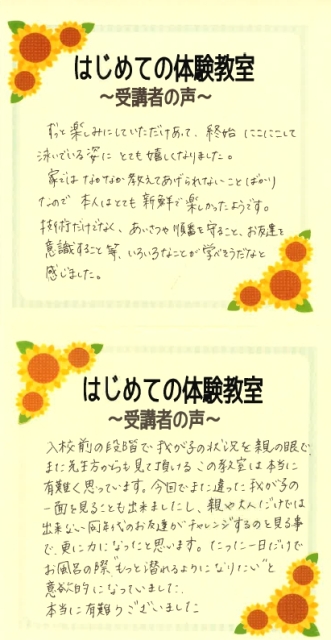 はじめての体験教室
～受講者の声～
ずっと楽しみにしていただけあって、終始 にこにこして
泳いでいる姿に とても嬉しくなりました。
家では なかなか教えてあげられないことばかり
なので 本人はとても 新鮮で楽しかったようです。
技術だけでなく、あいさつや順番を守ること、お友達を
意識すること 等、いろいろなことが 学べそうだなと
感じました。
はじめての体験教室
～受講者の声～
入校前の段階で我が子の状況を親の眼で、
また先生方からも見て頂ける この教室は本当に
有難く思っています。今回でまた違った我が子の
一面を見ることも出来ましたし、親や大人だけでは
出来ない同年代のお友達がチャレンジするのを見る事
で、更に力になったと思います。たった一日だけで
お風呂の際"もっと潜れるようになりたい"と
意欲的になっていました。
本当に有難うございました